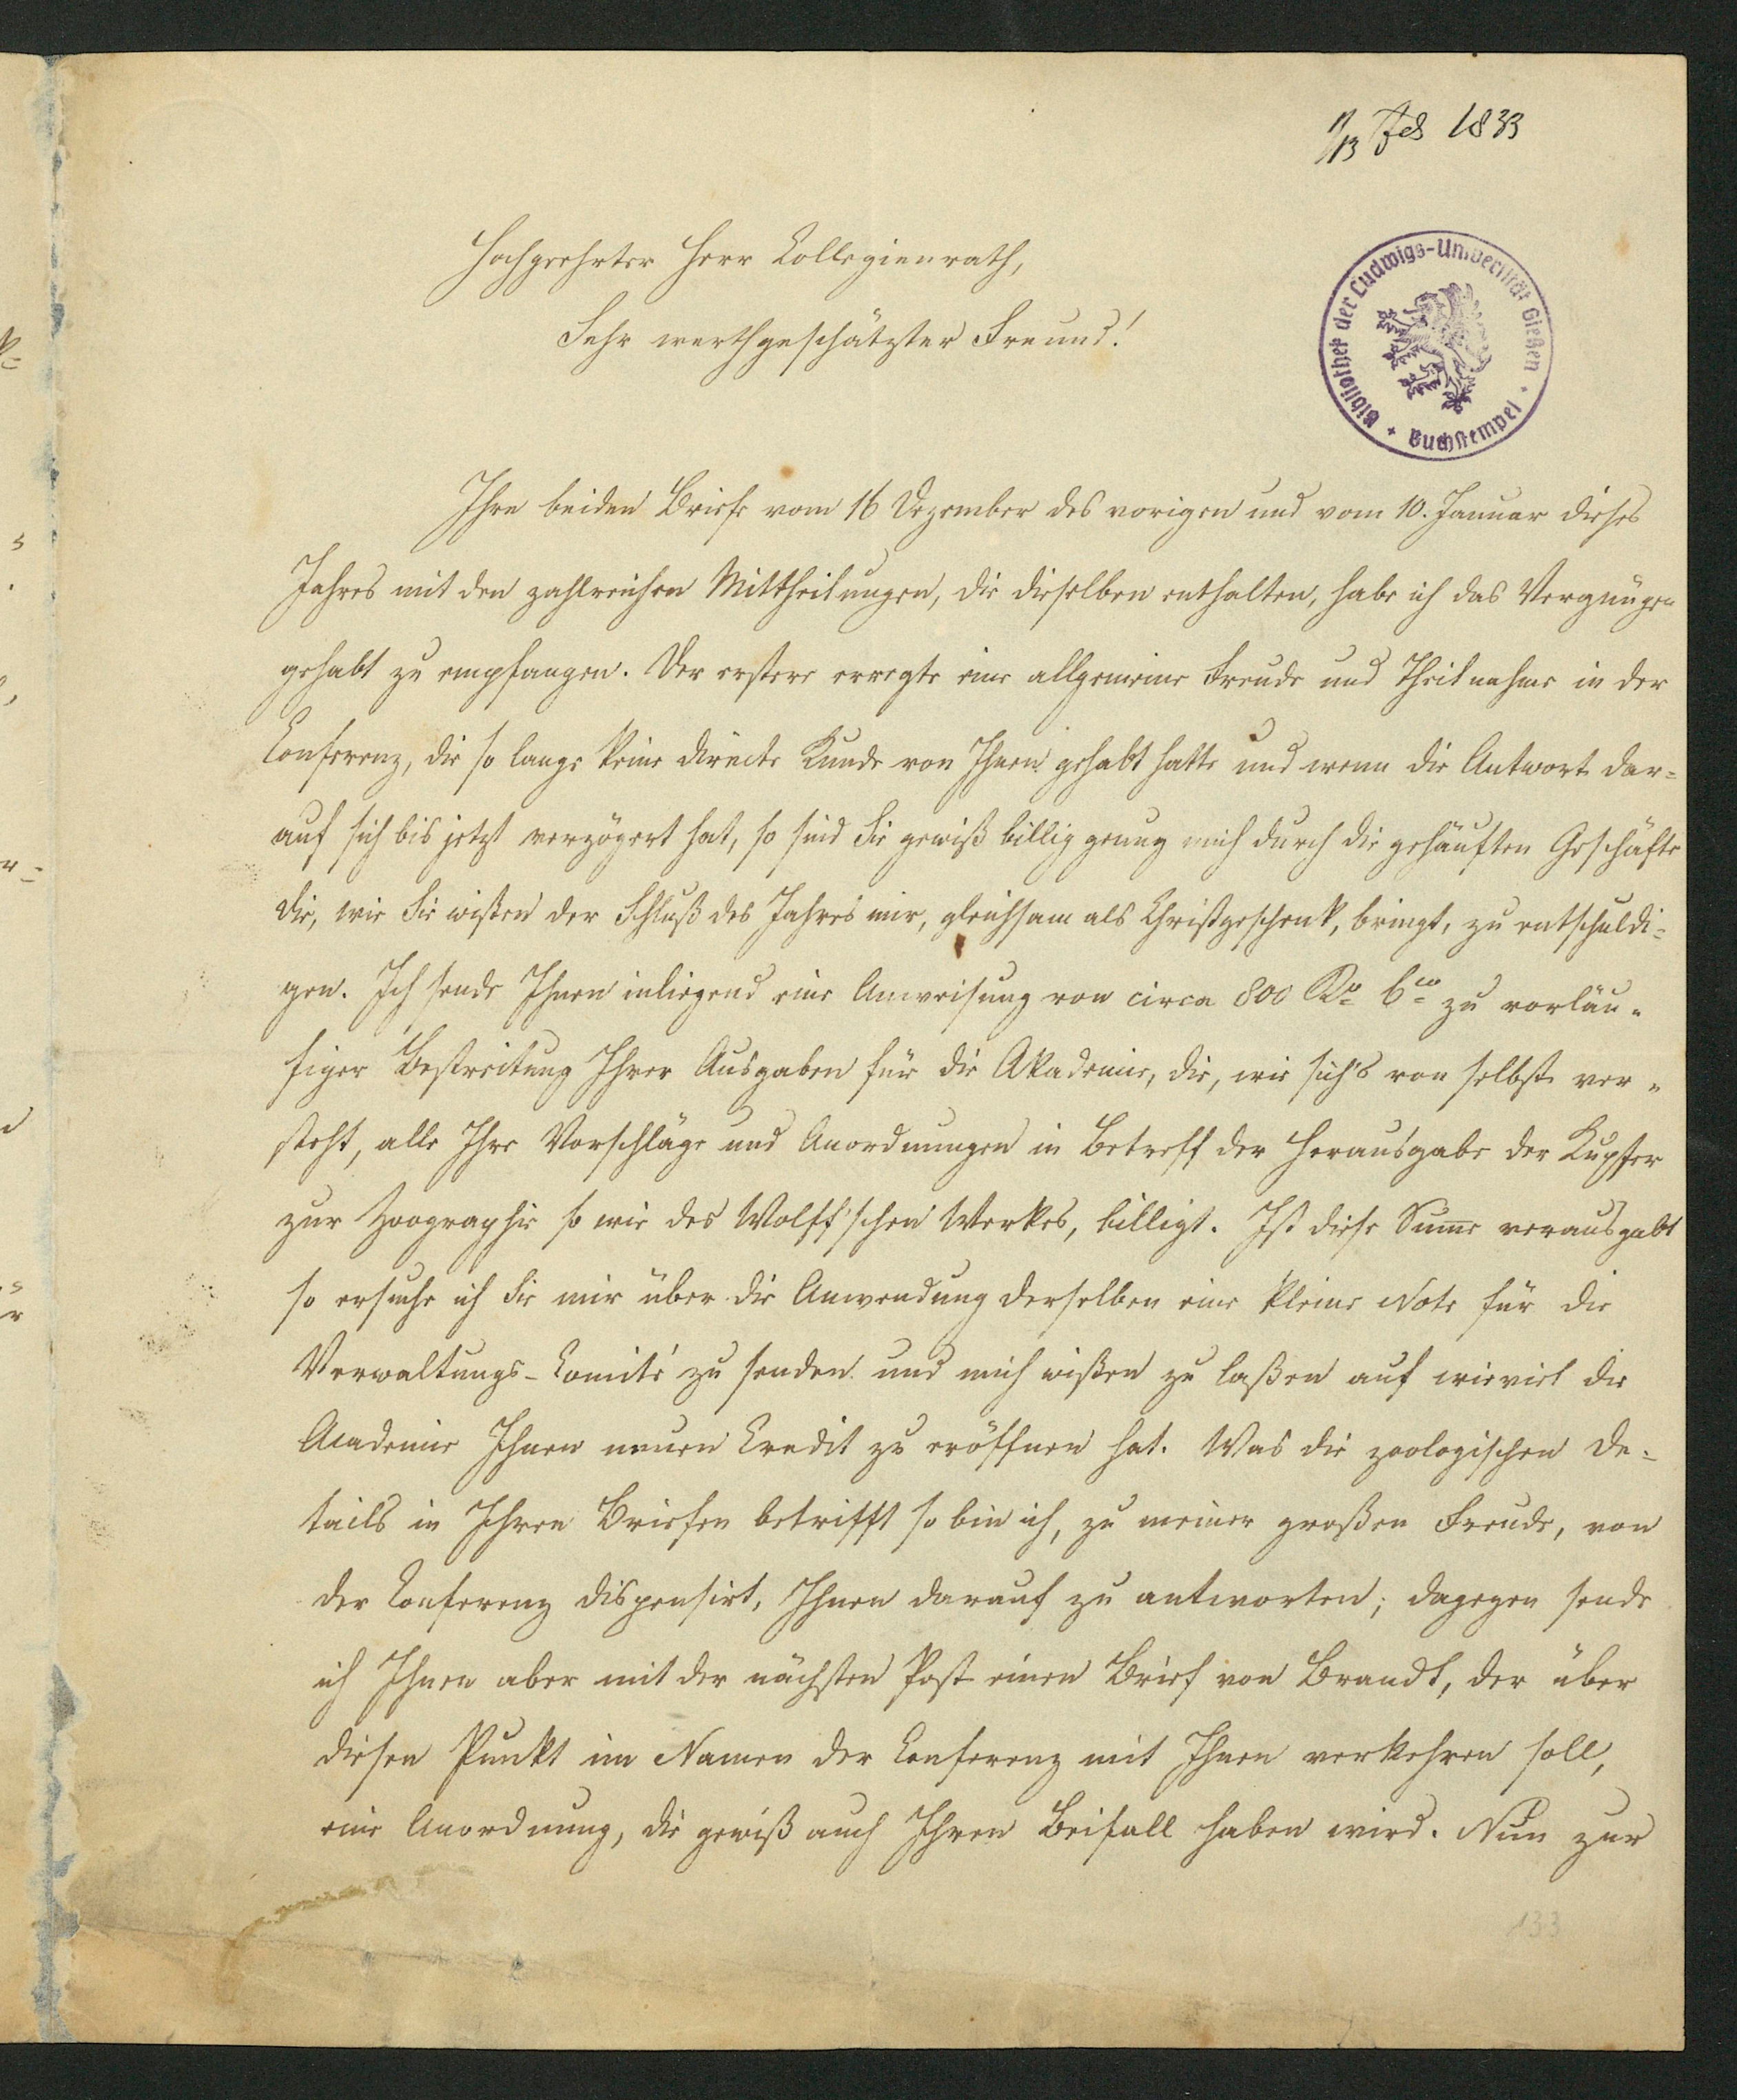 1/13 Feb 1833
Hochgeehrter Herr Collegienrath,
Sehr werthgeschätzter Freund!
Bibliothek der Ludwigs-Universität Gießen + Buchstempel +
Ihre beiden Briefe vom 16 Dezember des vorigen und vom 10. Januar dieses
Jahres mit den zahlreichen Mittheilungen, die dieselben enthalten, habe ich das Vergnügen
gehabt zu empfangen. Der erstere erregte eine allgemeine Freude und Theilnahme in der
Conferenz, die so lange keine directe Kunde von Ihnen gehabt hatte und wenn die Antwort dar-
auf sich bis jetzt verzögert hat, so sind Sie gewiß billig genug mich durch die gehäuften Geschäfte
die, wie Sie wißen der Schluß des Jahres mir, gleichsam als Christgeschenk, bringt, zu entschuldi-
gen. Ich sende Ihnen inliegend eine Anweisung von circa 800 Ro bco zu vorläu-
figer Bestreitung Ihrer Ausgaben für die Akademie, die, wie sich's von selbst ver-
steht, alle Ihre Vorschläge und Anordnungen in Betreff der Herausgabe der Kupfer
zur Zoographie so wie des Wolff'schen Werkes, billigt. Ist diese Sum̅e verausgabt
so ersuche ich Sie mir über die Anwendung derselben eine kleine Note für die
Verwaltungs-Comité zu senden und mich wißen zu laßen auf wieviel die
Academie Ihnen neuen Credit zu eröffnen hat. Was die zoologischen De-
tails in Ihren Briefen betrifft so bin ich, zu meiner großen Freude, von
der Conferenz dispensirt, Ihnen darauf zu antworten; dagegen sende
ich Ihnen aber mit der nächsten Post einen Brief von Brandt, der über
diesen Punkt im Namen der Conferenz mit Ihnen verkehren soll,
eine Anordnung, die gewiß auch Ihren Beifall haben wird. Nun zur
133